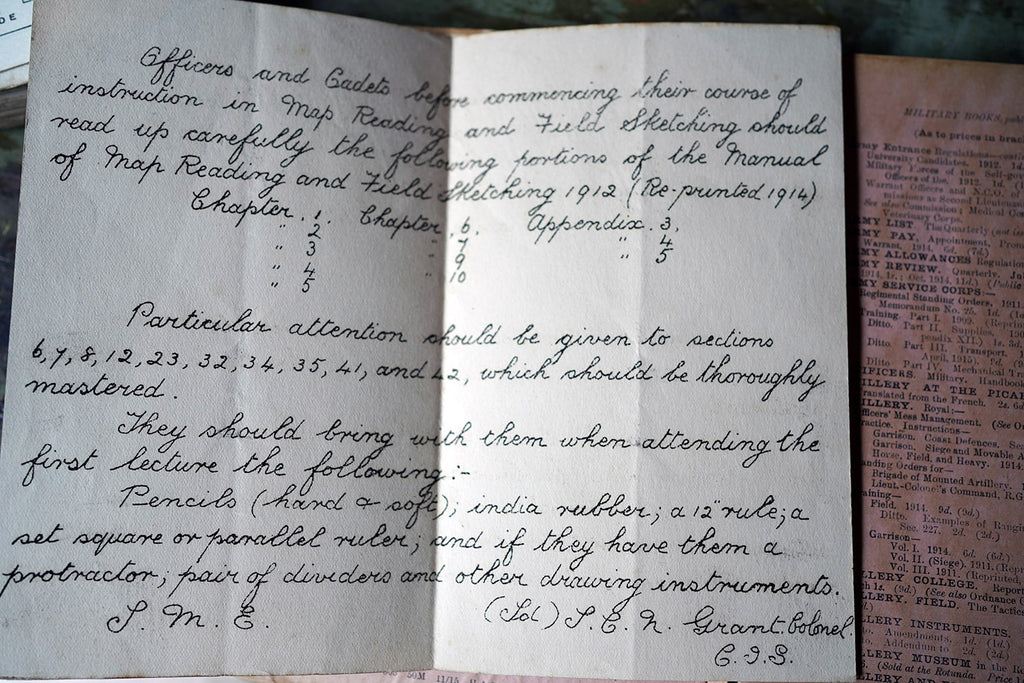 DE
Officers and Cadets before commencing their course of
instruction in Map Reading and Field Sketching should
read up carefully the following portions of the Manual
of Map Reading and Field Sketching 1912 (Re-printed 1914)
Chapter. 1. Chapter. 6. Appendix. 3.
" 2 " 7 " 4
" 3 " 9 " 5
" 4 " 10
" 5
Particular attention should be given to sections
6, 7, 8, 12, 23, 32, 34, 35, 41, and 42, which should be thoroughly
mastered.
They should bring with them when attending the
first lecture the following:-
Pencils (hard & soft); india rubber; a 12" rule; a
set square or parallel ruler; and if they have them a
protractor; pair of dividers and other drawing instruments.
S. M. E. (Sd) S. C. N. Grant. Colonel.
C. I. S.
50M 11/15
MILITARY BOOKS,
(As to prices in
Entrance Regulations—
University Candidates. 1912.
Forces of the
Officers of the. 1912. 1d.
Warrant Officers and N.C.O.
missions as Second
See also Commission; Medical
Veterinary Corps.
MY LIST. The Quarterly
MY PAY, Appointment,
Warrant, 1914.
MY ALLOWANCES
MY REVIEW. Quarterly.
1914, 1s.; Oct. 1914,
MY SERVICE CORPS:—
Regimental Standing Orders. 1911.
Memorandum No. 25. 1d.
Training. Part I. 1909.
Ditto. Part II. Supplies.
pendix XII.)
Ditto. Part III. Transport.
April, 1915.
Ditto. Part IV. Mechanical
IFICERS. Military. Handbook
ILLERY AT THE
translated from the French. 2s. 6d.
LLERY. Royal:—
Officers' Mess Management.
ractice. Instructions—
Garrison. Coast Defences.
Garrison. Siege and Movable
Horse, Field, and Heavy. 1914.
anding Orders for—
Brigade of Mounted Artillery.
Lieut.-Colonel's Command, R.G.
aining—
Field. 1914. 9d. (9d.)
Ditto. Examples of
Sec. 227. 2d. (2d.)
Garrison—
Vol. I. 1914. 6d. (6d.)
Vol. II. (Siege). 1911.
Vol. III. 1911. (Reprinted,
LLERY COLLEGE.
1s. (9d.) (See also Ordnance
LLERY. FIELD. The
LLERY INSTRUMENTS.
Amendments. 1d. (1d.)
Addendum to. 2d. (2d.)
LLERY MUSEUM in the
(Sold at the Rotunda.
LLERY AND